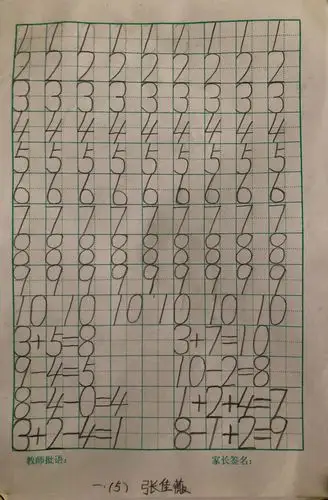 1 1 1 1 1 1 1 1 1
2 2 2 2 2 2 2 2 2
3 3 3 3 3 3 3 3 3
4 4 4 4 4 4 4 4 4
5 5 5 5 5 5 5 5 5
6 6 6 6 6 6 6 6 6
7 7 7 7 7 7 7 7 7
8 8 8 8 8 8 8 8 8
9 9 9 9 9 9 9 9 9
10 10 10 10 10 10
3+5=8 3+7=10
9-4=5 10-2=8
8-4-0=4 1+2+4=7
3+2-4=1 8-1+2=9
教师批语： 家长签名：
一(5) 张佳